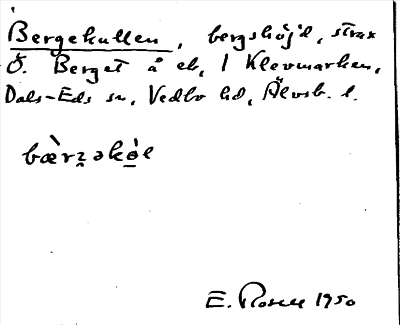 Bergekullen, bergshöjd, strax
Ö. Berget å eb, 1 Klevmarken,
Dals-Eds sn, Vedbo hd, Älvsb. l.
bæ̀rẕəkò̱l
E. Rosell 1950